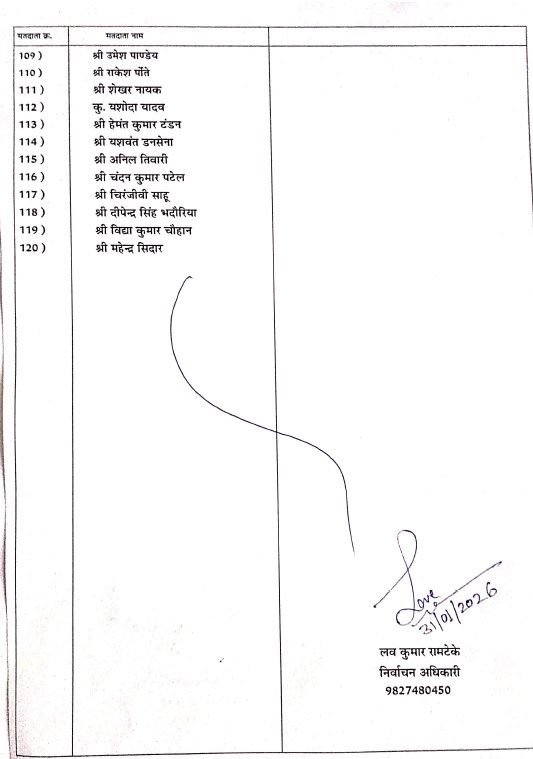 मतदाता क्र. मतदाता नाम
109 ) श्री उमेश पाण्डेय
110 ) श्री राकेश पोंते
111 ) श्री शेखर नायक
112 ) कु. यशोदा यादव
113 ) श्री हेमंत कुमार टंडन
114 ) श्री यशवंत डनसेना
115 ) श्री अनिल तिवारी
116 ) श्री चंदन कुमार पटेल
117 ) श्री चिरंजीवी साहू
118 ) श्री दीपेन्द्र सिंह भदौरिया
119 ) श्री विद्या कुमार चौहान
120 ) श्री महेन्द्र सिदार
Love
31/01/2026
लव कुमार रामटेके
निर्वाचन अधिकारी
9827480450